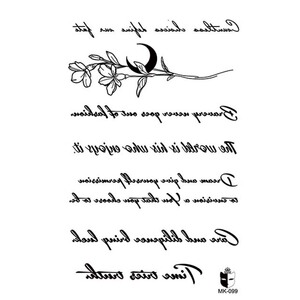 Countless choices define our fate
Bravery never goes out of fashion.
The world is his who enjoys it.
Dream and give yourself permission
to envision a You that you choose to be
Care and diligence bring luck
Time tries truth.
MK-099